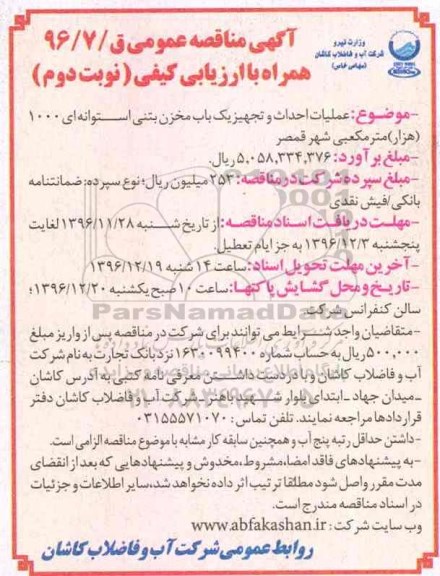 وزارت نیرو
شرکت آب و فاضلاب کاشان
(سهامی خاص)
آگهی مناقصه عمومی ق/۹۶/۷
همراه با ارزیابی کیفی (نوبت دوم)
-موضوع: عملیات احداث و تجهیز یک باب مخزن بتنی استوانه ای ۱۰۰۰
(هزار) مترمکعبی شهر قمصر
-مبلغ برآورد: ۵,۰۵۸,۳۳۴,۳۷۶ ریال.
-مبلغ سپرده شرکت در مناقصه: ۲۵۳ میلیون ریال؛ نوع سپرده: ضمانتنامه
بانکی/فیش نقدی
-مهلت دریافت اسناد مناقصه: از تاریخ شنبه ۱۳۹۶/۱۱/۲۸ لغایت
پنجشنبه ۱۳۹۶/۱۲/۳ به جز ایام تعطیل.
-آخرین مهلت تحویل اسناد: ساعت ۱۴ شنبه ۱۳۹۶/۱۲/۱۹
-تاریخ و محل گشایش پاکتها: ساعت ۱۰ صبح یکشنبه ۱۳۹۶/۱۲/۲۰؛
سالن کنفرانس شرکت
-متقاضیان واجد شرایط می توانند برای شرکت در مناقصه پس از واریز مبلغ
۵۰۰,۰۰۰ ریال به حساب شماره ۱۶۳۰۰۹۹۴۰۰ نزد بانک تجارت به نام شرکت
آب و فاضلاب کاشان و با در دست داشتن معرفی نامه کتبی به آدرس کاشان
-میدان جهاد -ابتدای بلوار شهید باهنر شرکت آب و فاضلاب کاشان دفتر
قراردادها مراجعه نمایند. تلفن تماس: ۰۳۱۵۵۵۷۱۰۷۰
-داشتن حداقل رتبه پنج آب و همچنین سابقه کار مشابه با موضوع مناقصه الزامی است.
-به پیشنهادهای فاقد امضا، مشروط، مخدوش و پیشنهادهایی که بعد از انقضای
مدت مقرر واصل شود مطلقا ترتیب اثر داده نخواهد شد، سایر اطلاعات و جزئیات
در اسناد مناقصه مندرج است.
وب سایت شرکت: www.abfakashan.ir
روابط عمومی شرکت آب و فاضلاب کاشان
ParsNamadData